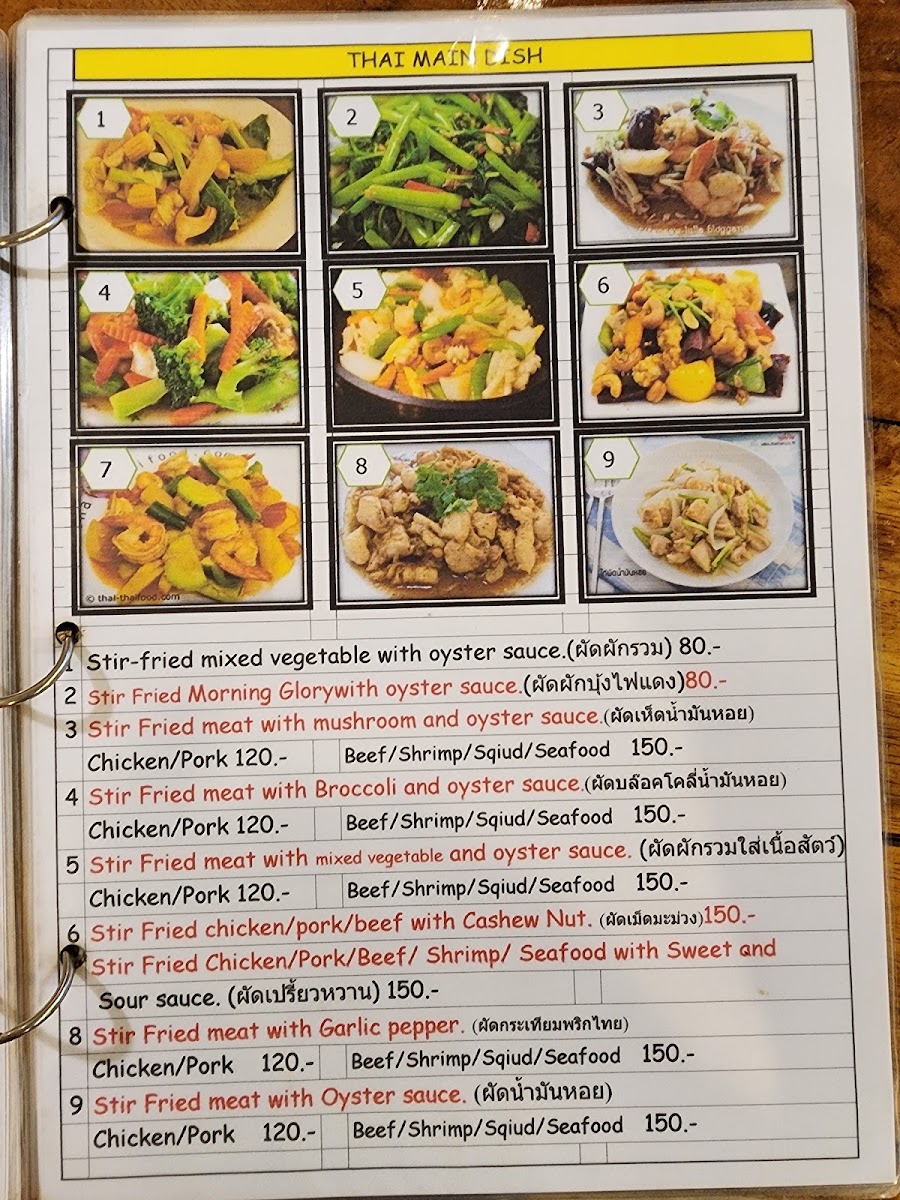 THAI MAIN DISH
1
2
3
4
5
6
7
8
9
© thai-thaifood.com
1 Stir-fried mixed vegetable with oyster sauce.(ผัดผักรวม) 80.-
2 Stir Fried Morning Glorywith oyster sauce.(ผัดผักบุ้งไฟแดง)80.-
3 Stir Fried meat with mushroom and oyster sauce.(ผัดเห็ดน้ำมันหอย)
Chicken/Pork 120.- Beef/Shrimp/Sqiud/Seafood 150.-
4 Stir Fried meat with Broccoli and oyster sauce.(ผัดบล๊อคโคลี่น้ำมันหอย)
Chicken/Pork 120.- Beef/Shrimp/Sqiud/Seafood 150.-
5 Stir Fried meat with mixed vegetable and oyster sauce. (ผัดผักรวมใส่เนื้อสัตว์)
Chicken/Pork 120.- Beef/Shrimp/Sqiud/Seafood 150.-
6 Stir Fried chicken/pork/beef with Cashew Nut. (ผัดเม็ดมะม่วง)150.-
Stir Fried Chicken/Pork/Beef/ Shrimp/ Seafood with Sweet and
Sour sauce. (ผัดเปรี้ยวหวาน) 150.-
8 Stir Fried meat with Garlic pepper. (ผัดกระเทียมพริกไทย)
Chicken/Pork 120.- Beef/Shrimp/Sqiud/Seafood 150.-
9 Stir Fried meat with Oyster sauce. (ผัดน้ำมันหอย)
Chicken/Pork 120.- Beef/Shrimp/Sqiud/Seafood 150.-